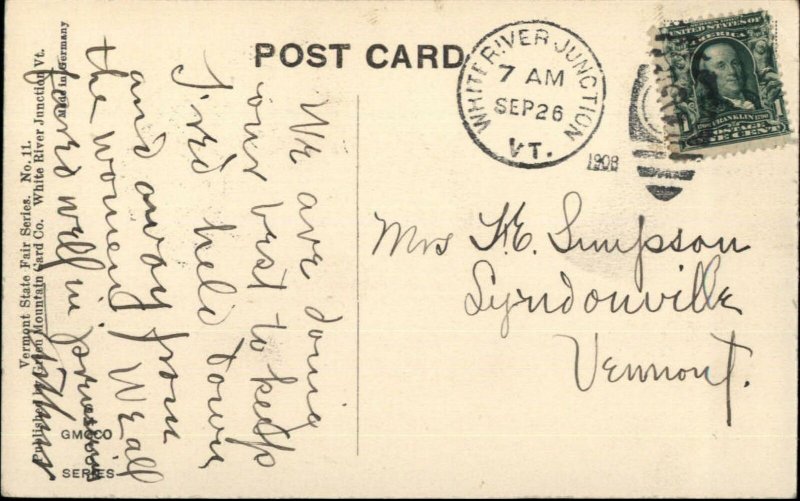 POST CARD
WHITE RIVER JUNCTION
7 AM
SEP 26
VT.
1908
UNITED STATES OF
AMERICA
1706 FRANKLIN 1790
POSTAGE
ONE CENT
Mrs H. E. Simpson
Lyndonville
Vermont.
We are doing
our best to keep
Fred held down
and away from
the women. We all
fared well in
Vermont State Fair Series. No. 11.
Published by Green Mountain Card Co. White River Junction Vt.
Made in Germany
GMCCO
SERIES